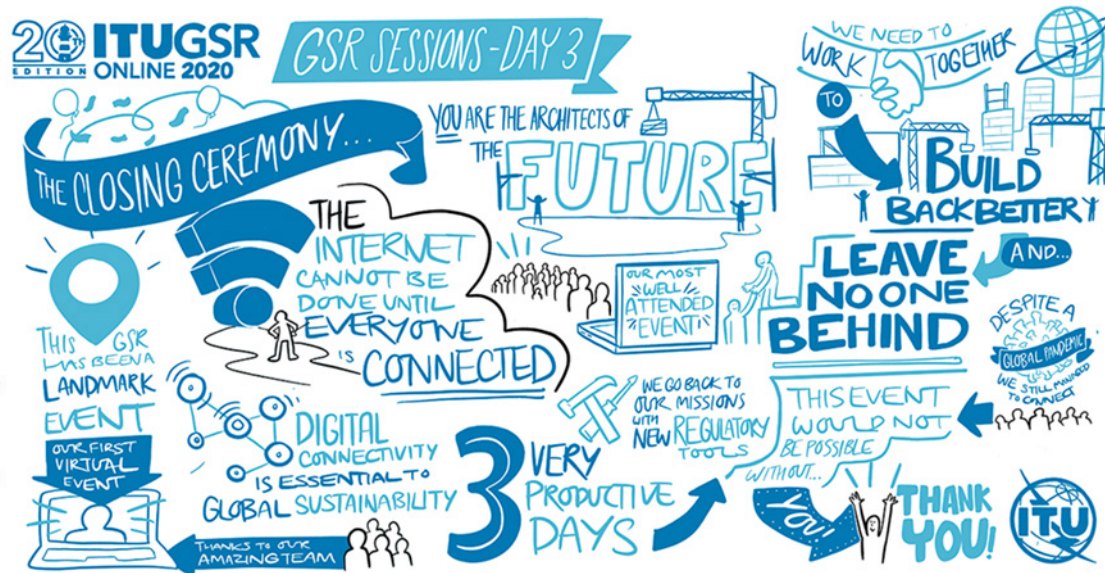 20TH
EDITION
ITUGSR
ONLINE 2020
GSR SESSIONS-DAY 3
THE CLOSING CEREMONY...
YOU ARE THE ARCHITECTS OF
THE FUTURE
WE NEED TO
WORK TOGETHER
TO
BUILD
BACK BETTER
AND...
LEAVE
NO ONE
BEHIND
THE
INTERNET
CANNOT BE
DONE UNTIL
EVERYONE
IS
CONNECTED
OUR MOST
WELL
ATTENDED
EVENT
DESPITE A
GLOBAL PANDEMIC
WE STILL MANAGED
TO CONNECT
THIS GSR
HAS BEEN A
LANDMARK
EVENT
OUR FIRST
VIRTUAL
EVENT
THANKS TO OUR
AMAZING TEAM
DIGITAL
CONNECTIVITY
IS ESSENTIAL TO
GLOBAL SUSTAINABILITY
3 VERY
PRODUCTIVE
DAYS
WE GO BACK TO
OUR MISSIONS
WITH
NEW REGULATORY
TOOLS
THIS EVENT
WOULD NOT
BE POSSIBLE
WITHOUT...
YOU!
THANK
YOU!
ITU